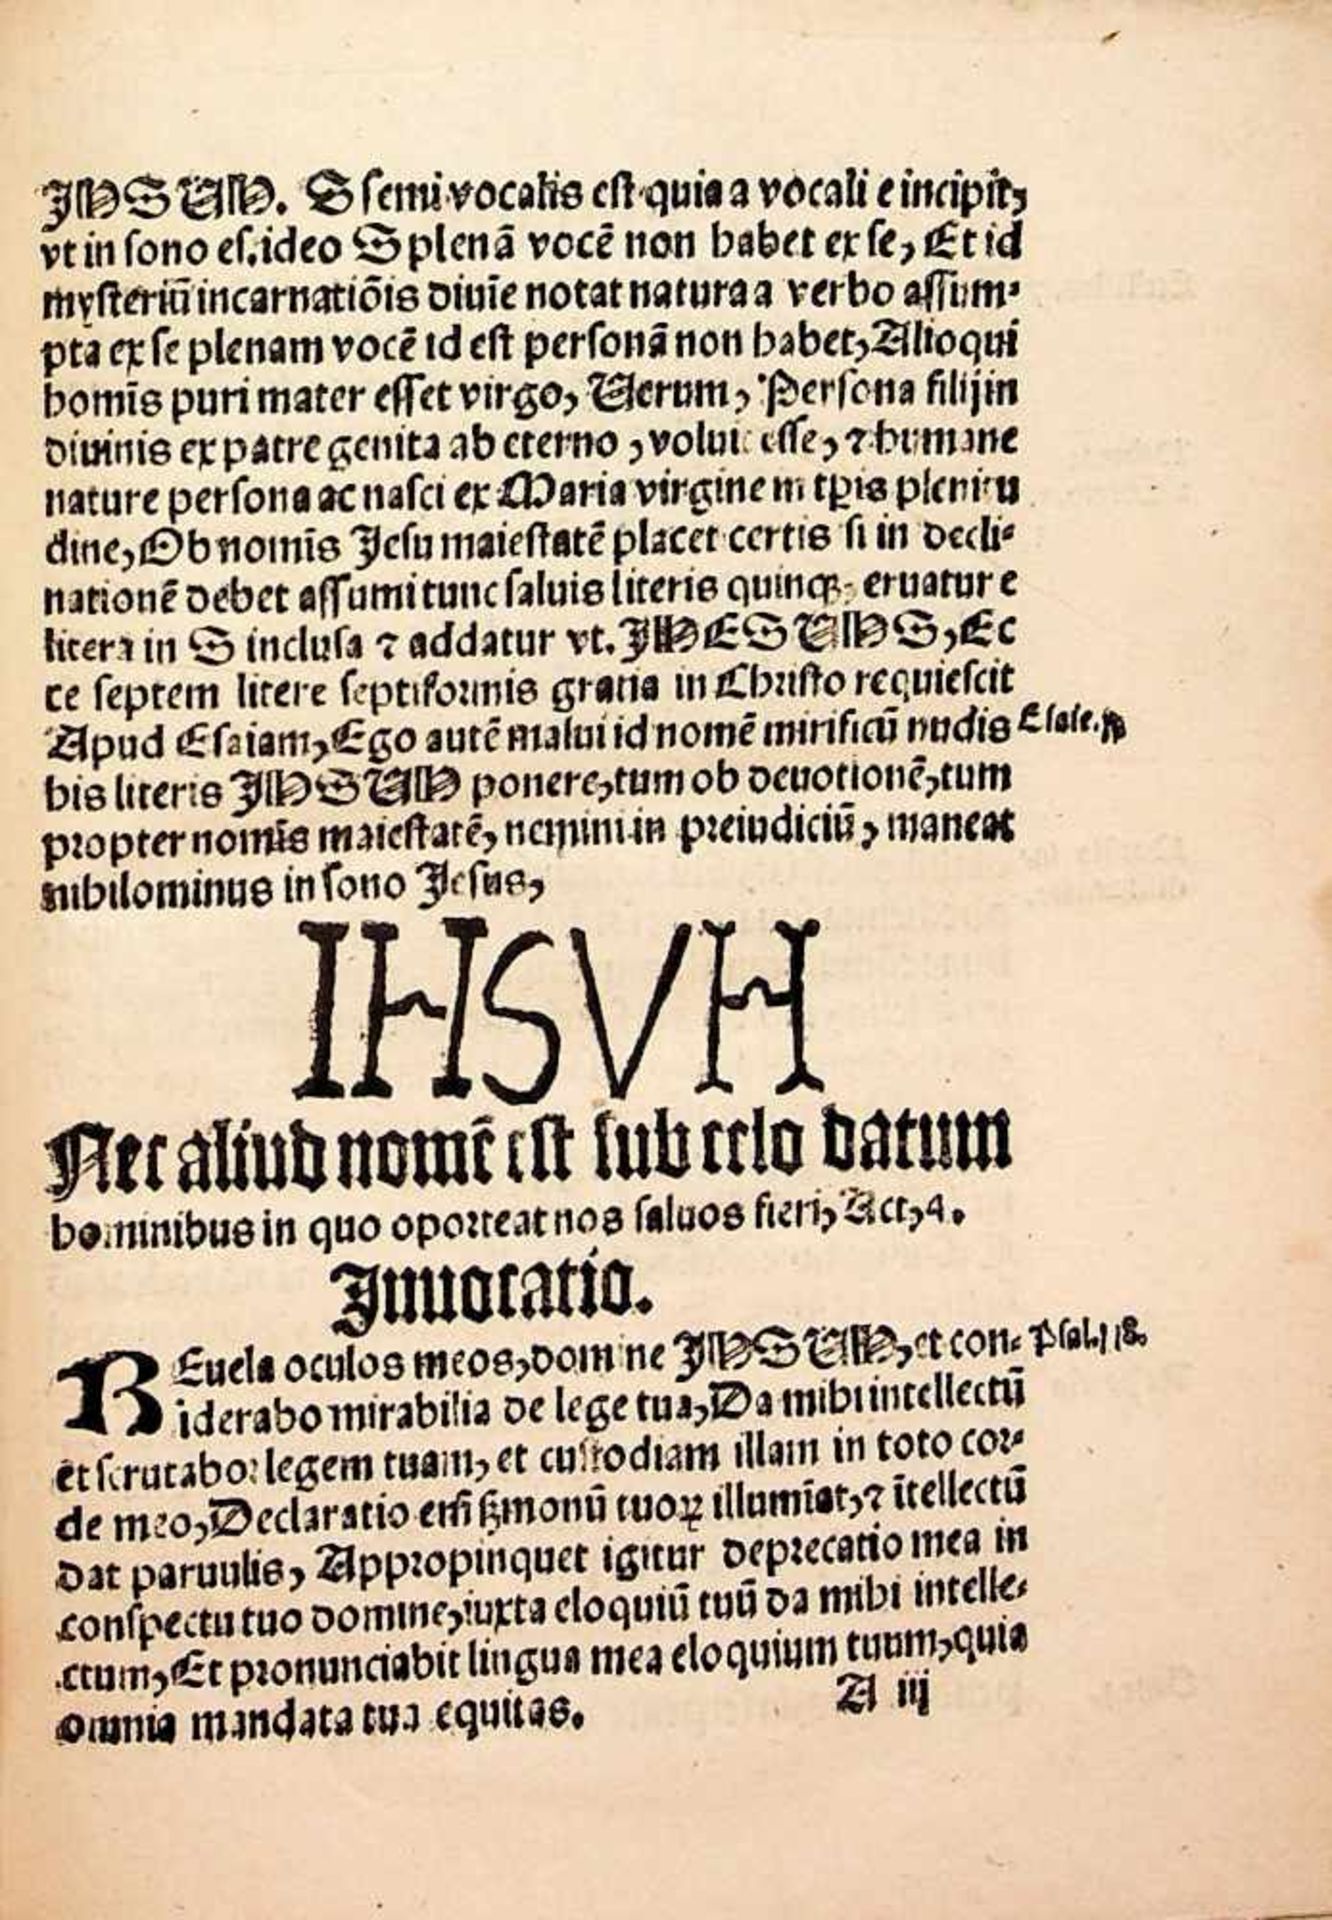 JHSUH. S semi vocalis est quia a vocali e incipit,
vt in sono es. ideo S plenã vocẽ non habet ex se, Et id
mysteriũ incarnatiõis diuĩe notat natura a verbo assum-
pta ex se plenam vocẽ id est personã non habet, Alioqui
homĩs puri mater esset virgo, Uerum, Persona filij in
diuinis ex patre genita ab eterno, voluit esse, ⁊ humane
nature persona ac nasci ex Maria virgine in tꝑis plenitu
dine, Ob nomĩs Jesu maiestatẽ placet certis si in decli-
nationẽ debet assumi tunc saluis literis quinqꝫ eruatur e
litera in S inclusa ⁊ addatur vt. JHESUHS, Ec
ce septem litere septiformis gratia in Christo requiescit
Apud Esaiam, Ego autẽ malui id nomẽ mirificũ nudis
Esaie.
his literis JHSUH ponere, tum ob deuotionẽ, tum
propter nomĩs maiestatẽ, nemini in preiudiciũ, maneat
nihilominus in sono Jesus,
IHSVH
Nec aliud nomẽ est sub celo datum
hominibus in quo oporteat nos saluos fieri, Act, 4.
Inuocatio.
REuela oculos meos, domine JHSUH, et con-
Psal. 118.
iderabo mirabilia de lege tua, Da mihi intellectũ
et scrutabor legem tuam, et custodiam illam in toto cor-
de meo, Declaratio em̃ s̃monũ tuoꝝ illumĩat, ⁊ ĩtellectũ
dat paruulis, Appropinquet igitur deprecatio mea in
conspectu tuo domine, iuxta eloquiũ tuũ da mihi intelle-
ctum, Et pronunciabit lingua mea eloquium tuum, quia
omnia mandata tua equitas.
A iij